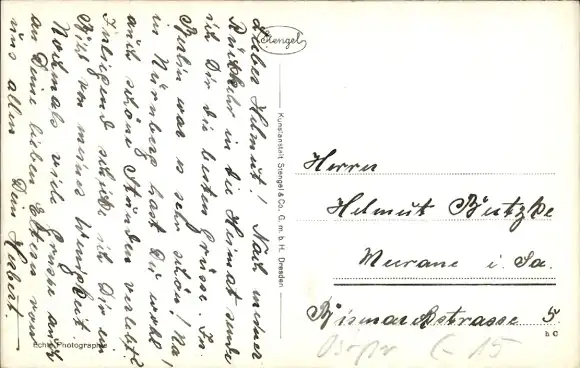 Lieber Helmut! Nach meiner
Rückkehr in die Heimat sende
ich Dir die besten Grüsse. In
Berlin war es sehr schön! Na,
in Nürnberg hast Du wohl
auch schöne Stunden verlebt?
Inliegend schicke ich Dir ein
Bild von meiner Wenigkeit.
Nochmals viele Grüsse auch
an Deine lieben Eltern von
uns allen Dein Hubert.
Echte Photographie
Stengel
Kunstanstalt Stengel & Co. G. m. b. H. Dresden
Herrn
Helmut Butzke
Meerane i. Sa.
Bismarckstrasse 5
b C
C 15